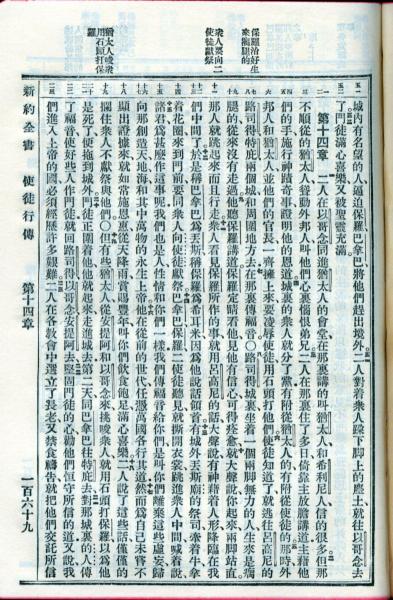 保羅治好生
來瘸腿的
衆人要向二
使徒獻祭
猶太人唆衆
用石頭打保
羅
城內有名望的人逼迫保羅巴拿巴將他們趕出境外二人對着衆人跺下脚上的塵土就往以哥念去
了門徒滿心喜樂又被聖靈充滿
第十四章 二人在以哥念同進猶太人的會堂在那裏講的叫猶太人和希利尼人信的很多但那
不順從的猶太人聳動外邦人叫他們心裏惱恨弟兄二人在那裏住了多日倚靠主放膽講道主藉他
們的手施行神蹟奇事證明他的恩道城裏的衆人就分了黨有附從猶太人的有附從使徒的那時外
邦人和猶太人並他們的官長一齊擁上來要凌辱使徒用石頭打他們使徒知道了就逃往呂高尼的
路司得特庇兩個城和周圍地方去在那裏傳福音〇路司得城裏坐着一個兩脚無力的人生來是瘸
腿的從來沒有走過他聽保羅講道保羅定睛看他見他有信心可得痊愈就大聲說你起來兩脚站直
那人就跳起來而且行走衆人看見保羅所作的事就用呂高尼的話大聲說有神藉着人形降臨在我
們中間了於是稱巴拿巴爲丟斯稱保羅爲希耳米因爲他說話領首有城外丟斯廟的祭司牽着牛拿
着花圈來到門前要同衆人向使徒獻祭巴拿巴保羅二使徒聽見就撕開衣裳跳進衆人中間喊着說
諸君爲甚麽作這事呢我們也是人性情和你們一樣我們傳福音給你們是叫你們離棄這些虛妄歸
向那創造天地海和其中萬物的永生上帝他在從前的世代任憑萬國各行其道然而爲自己未嘗不
顯出證據來就如常施恩惠從天降雨賞賜豐年叫你們飲食飽足滿心喜樂二人說了這些話僅僅的
攔住衆人不獻祭與他們〇但有些猶太人從安提阿和以哥念來挑唆衆人就用石頭打保羅以爲他
是死了便拖到城外門徒正圍着他他就起來走進城去第二天同巴拿巴往特庇去對那城裏的人傳
了福音使好些人作門徒就回路司得以哥念安提阿去堅固門徒的心勸他們恒守所信的道又說我
們進入上帝的國必須經歷許多艱難二人在各教會中選立了長老又禁食禱告就把他們交託所信
新約全書 使徒行傳 第十四章 一百六十九